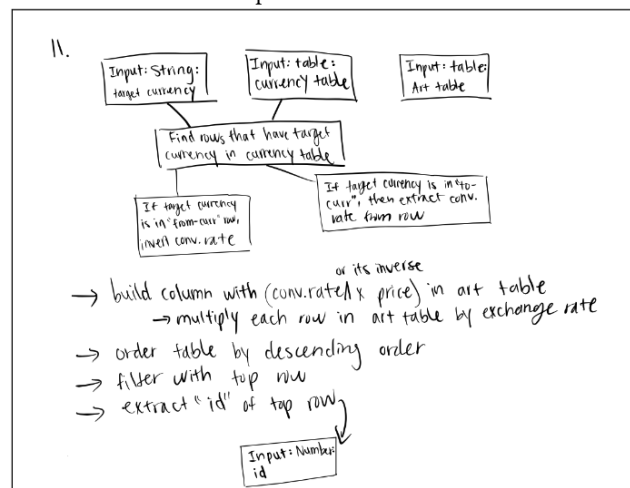 11.
Input: String:
target currency
Input: table:
currency table
Input: table:
Art table
Find rows that have target
currency in currency table
If target currency
is in "from-curr" row,
invert conv. rate
If target currency is in "to-
curr", then extract conv.
rate from row
or its inverse
→ build column with (conv. rate ∧ x price) in art table
→ multiply each row in art table by exchange rate
→ order table by descending order
→ filter with top row
→ extract "id" of top row
Input: Number:
id